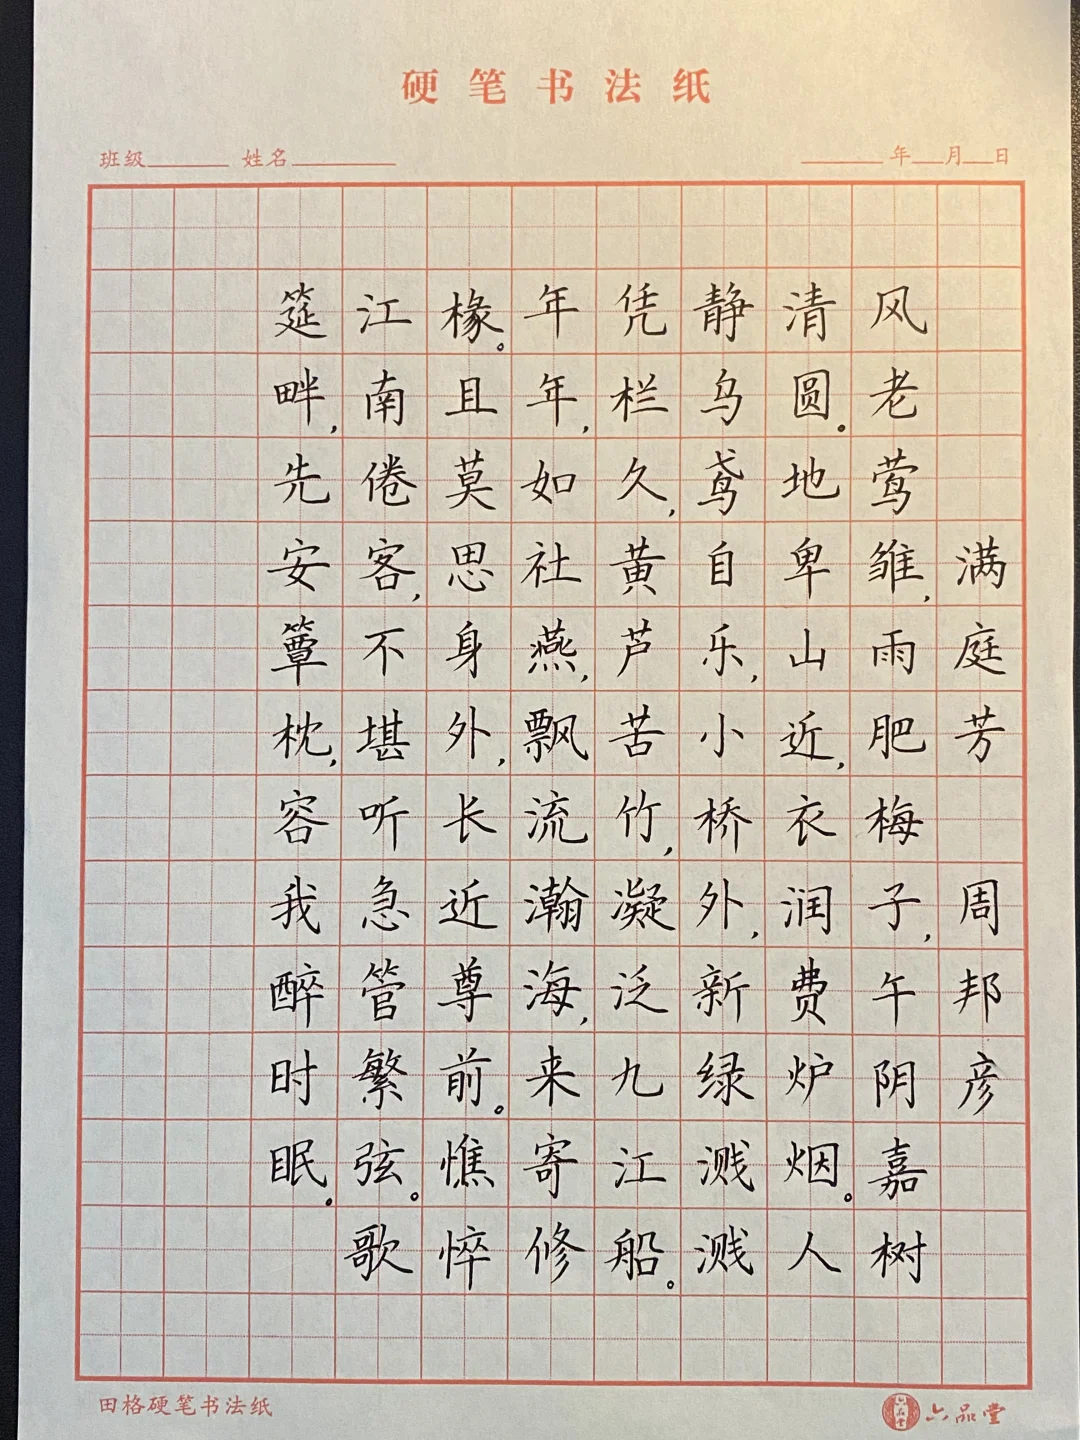 硬笔书法纸
班级 姓名 年 月 日
满庭芳 周邦彦
风老莺雏,雨肥梅子,午阴嘉树
清圆。地卑山近,衣润费炉烟。人
静乌鸢自乐,小桥外,新绿溅溅
凭栏久,黄芦苦竹,凝泛九江船。
年年,如社燕,飘流瀚海,来寄修
椽。且莫思身外,长近尊前。憔悴
江南倦客,不堪听急管繁弦。歌
筵畔,先安簟枕,容我醉时眠。
田格硬笔书法纸
六品堂
六品堂